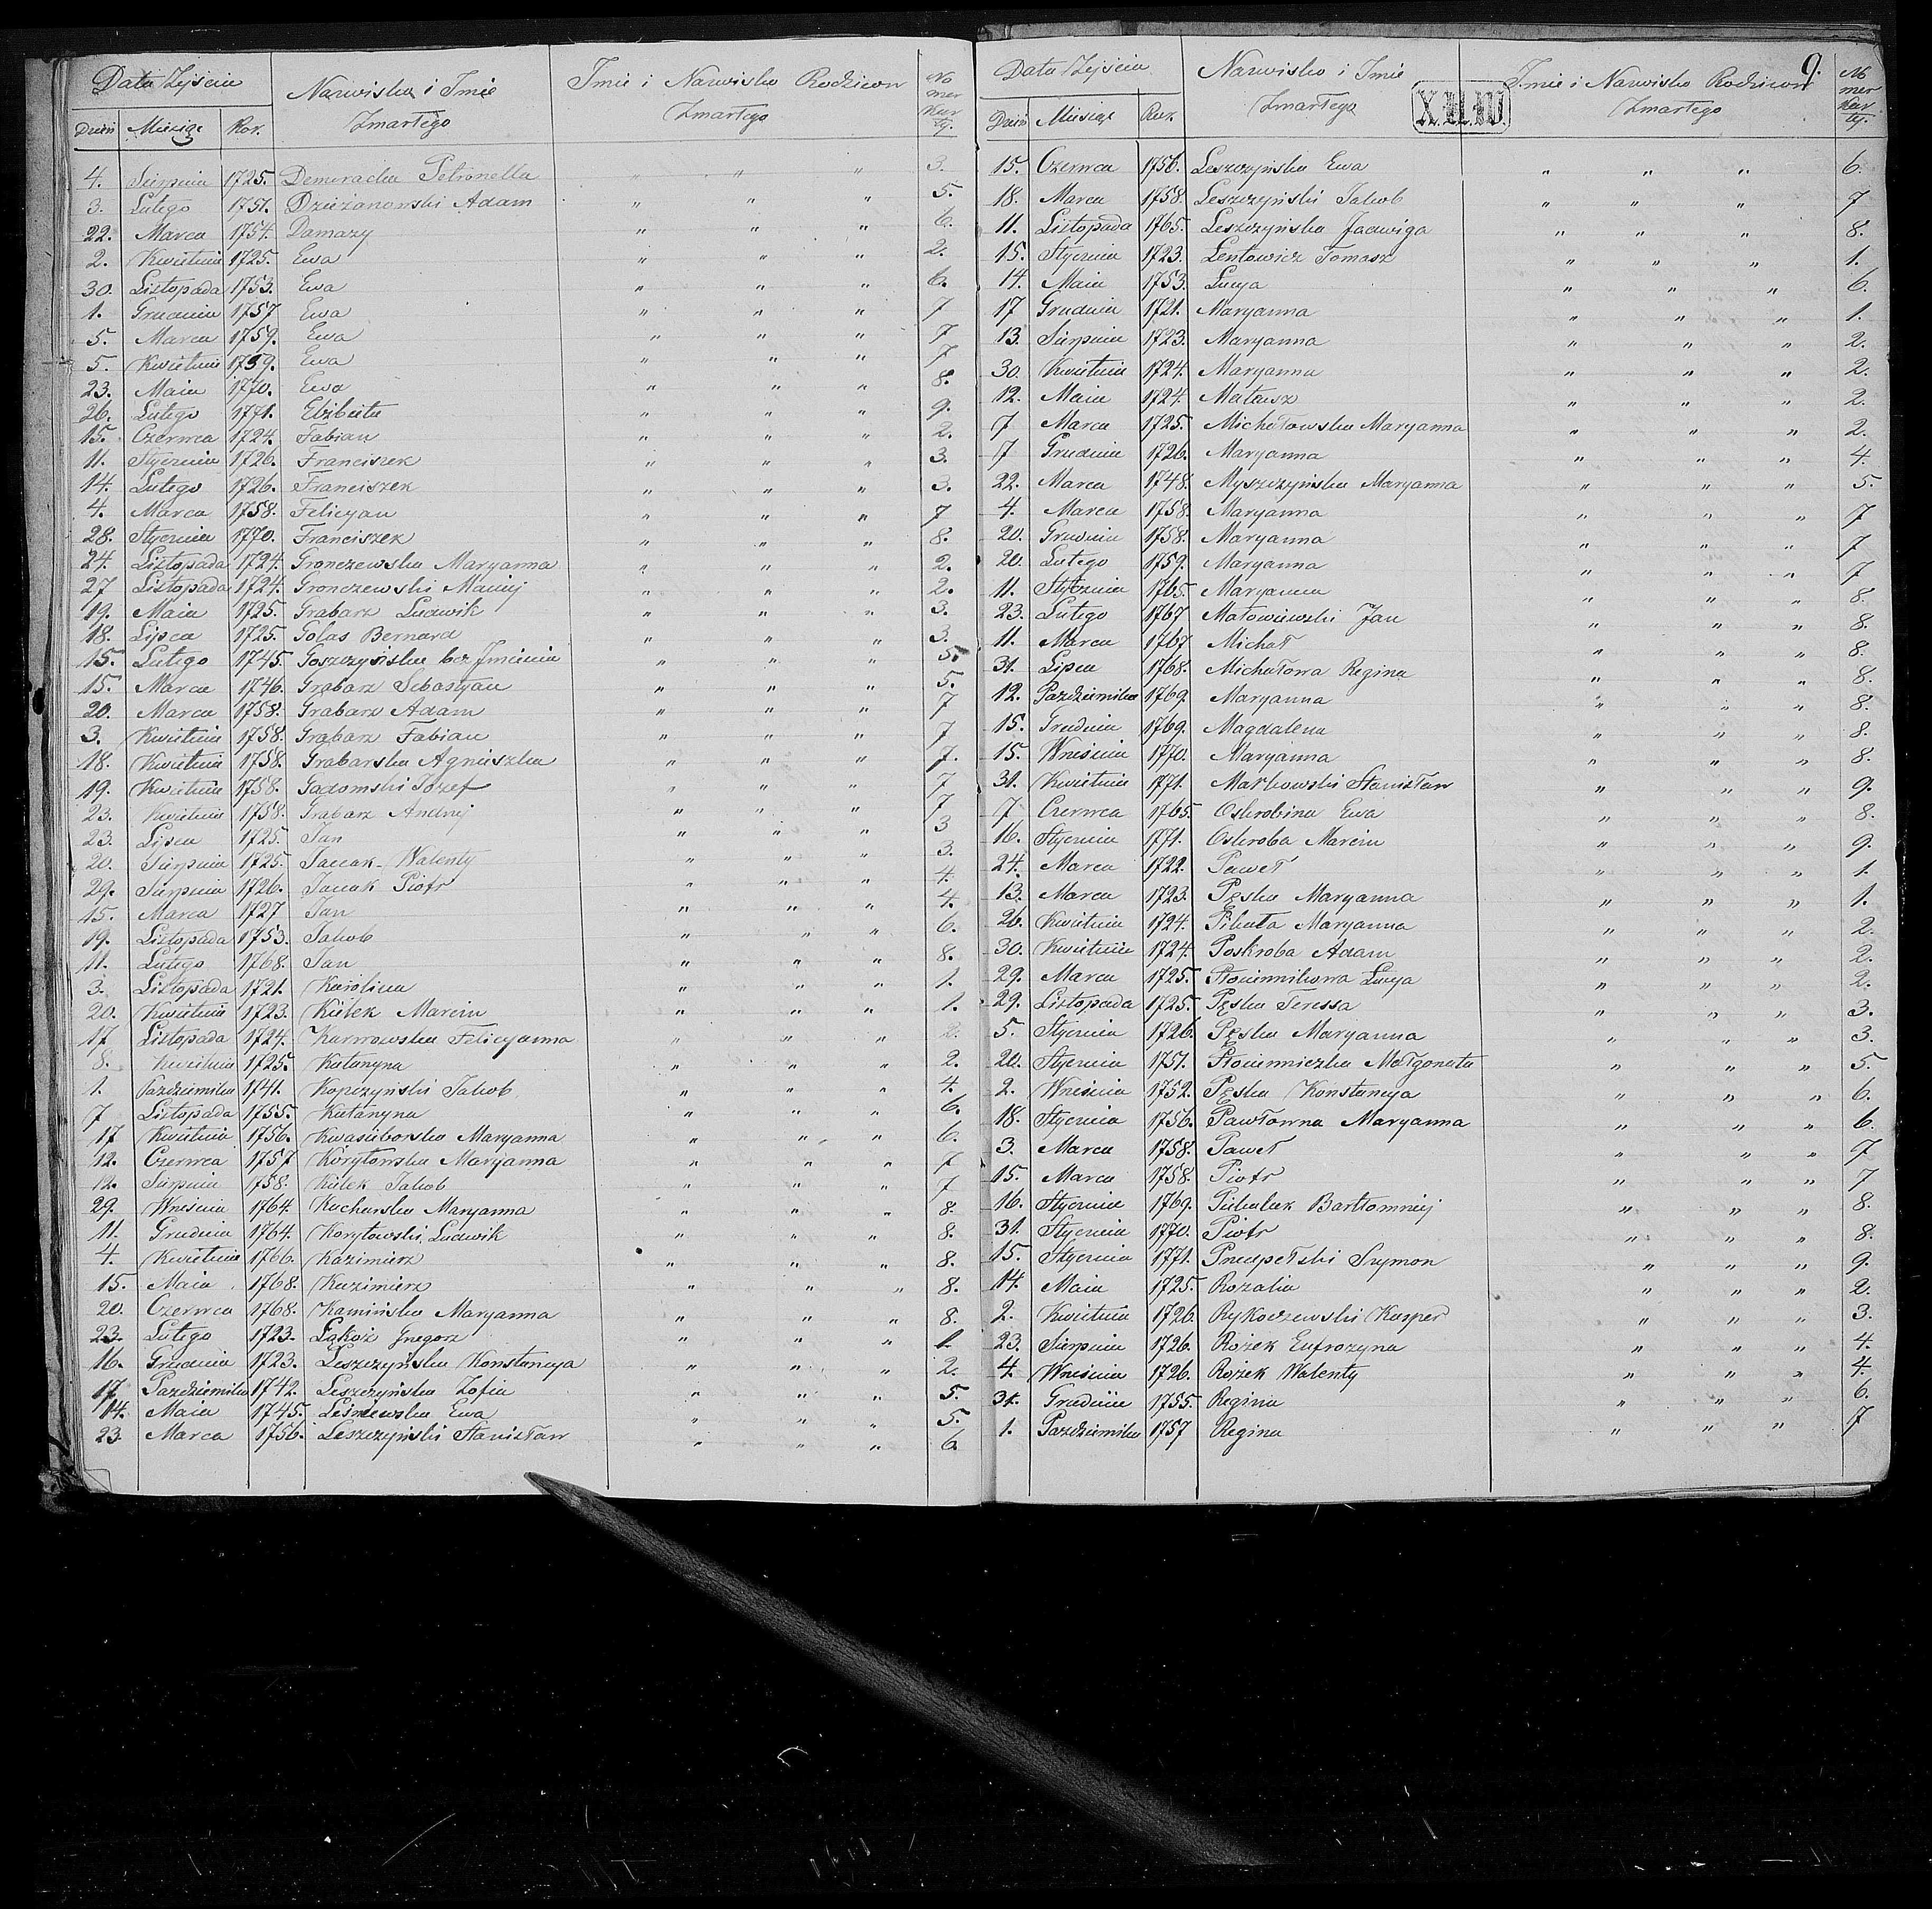 Data Zejścia
Nazwisko i Imie Zmartego
Imie i Nazwisko Rodziców Zmartego
No mer Kar ty.
Dzień Miesiąc Rok.
4. Sierpnia 1725. Demeracka Petronella " " " 3.
3. Lutego 1751. Dzieżanowski Adam " " " 5.
22. Marca 1754. Damazy " " " 6.
2. Kwietnia 1725. Ewa " " " 2.
30. Listopada 1753. Ewa " " " 6.
1. Grudnia 1757 Ewa " " " 7
5. Marca 1759. Ewa " " " 7
5. Kwietnia 1759. Ewa " " " 7
23. Maia 1770. Ewa " " " 8.
26. Lutego 1771. Elżbieta " " " 9.
15. Czerwca 1724. Fabian " " " 2.
11. Stycznia 1726. Franciszek " " " 3.
14. Lutego 1726. Franciszek " " " 3.
4. Marca 1758. Felicyan " " " 7
28. Stycznia 1770. Franciszek " " " 8.
24. Listopada 1724. Gronczewska Maryanna " " " 2.
27 Listopada 1724. Gronczewski Maciej " " " 2.
19. Maia 1725. Grabarz Ludwik " " " 3.
18. Lipca 1725. Golas Bernard " " " 3.
15. Lutego 1745. Goszczyńska bez Imienia " " " 5.
15. Marca 1746. Grabarz Sebastyan " " " 5.
20. Marca 1758. Grabarz Adam " " " 7
3. Kwietnia 1758. Grabarz Fabian " " " 7
18. Kwietnia 1758. Grabarska Agnieszka " " " 7.
19. Kwietnia 1758. Gadomski Jozef " " " 7
23. Kwietnia 1758. Grabarz Andrzej " " " 7
23. Lipca 1725. Jan " " " 3
20. Sierpnia 1725. Jaccak Walenty " " " 3.
29. Sierpnia 1726. Jacak Piotr " " " 4.
15. Marca 1727 Jan " " " 4.
19. Listopada 1753. Jakob " " " 6.
11. Lutego 1768. Jan " " " 8.
3. Listopada 1721. Karolina " " " 1.
20. Kwietnia 1723. Kiełek Marcin " " " 1.
17 Listopada 1724. Karwowska Felicyanna " " " 2.
8. Kwietnia 1725. Katarzyna " " " 2.
1. Pazdziernika 1741. Kopczyński Jakob " " " 4.
7 Listopada 1755. Katarzyna " " " 6.
17 Kwietnia 1756. Kwasieborska Maryanna " " " 6.
12. Czerwca 1757 Korytowska Maryanna " " " 7
12. Sierpnia 1758. Kiełek Jakob " " " 7
29. Wrześnie 1764. Kucharska Maryanna " " " 8.
11. Grudnia 1764. Korytowski Ludwik " " " 8.
4. Kwietnia 1766. Kazimierz " " " 8.
15. Maia 1768. Kazimierz " " " 8.
20. Czerwca 1768. Kamińska Maryanna " " " 8.
23. Lutego 1723. Grzegorz " " " 1.
16. Grudnia 1723. Leszczyńska Konstancya " " " 2.
17. Pazdziernika 1742. Leszczyńska Zofia " " " 5.
14. Maia 1745. Leśniewska Ewa " " " 5.
23. Marca 1756. Leszczyński Stanisław " " " 6.
9.
Data Zejścia
Nazwisko i Imie Zmartego
Imie i Nazwisko Rodziców Zmartego
No mer Kar ty.
Dzień Miesiąc Rok.
15. Czerwca 1756. Leszczyńska Ewa " " " 6.
18. Marca 1758. Leszczyński Jakob " " " 7
11. Listopada 1765. Leszczyńska Jadwiga " " " 8.
15. Stycznia 1723. Lentowicz Tomasz " " " 1.
14. Maia 1753. Lucya " " " 6.
17 Grudnia 1721. Maryanna " " " 1.
13. Sierpnia 1723. Maryanna " " " 2.
30. Kwietnia 1724. Maryanna " " " 2.
12. Maia 1724. Mateusz " " " 2.
7 Marca 1725. Michałowska Maryanna " " " 2.
7 Grudnia 1726. Maryanna " " " 4.
22. Marca 1748. Myszczyńska Maryanna " " " 5.
4. Marca 1758. Maryanna " " " 7
20. Grudnia 1758. Maryanna " " " 7
20. Lutego 1759. Maryanna " " " 7
11. Stycznia 1765. Maryanna " " " 8.
23. Lutego 1767 Małowiewski Jan " " " 8.
11. Marca 1767 Michał " " " 8.
31. Lipca 1768. Michałowa Regina " " " 8.
12. Pazdziernika 1769. Maryanna " " " 8.
15. Grudnia 1769. Magdalena " " " 8.
15. Wrześnie 1770. Maryanna " " " 8.
31. Kwietnia 1771. Markowski Stanisław " " " 9.
7 Czerwca 1765. Oskrobina Ewa " " " 8.
16. Stycznia 1771. Oskroba Marcin " " " 9.
24. Marca 1722. Paweł " " " 1.
13. Marca 1723. Pęska Maryanna " " " 1.
26. Kwietnia 1724. Maryanna " " " 2.
30. Kwietnia 1724. Poskroba Adam " " " 2.
29. Marca 1725. Płociennikowa Lucya " " " 2.
29. Listopada 1725. Pęska Teressa " " " 3.
5. Stycznia 1726. Pęska Maryanna " " " 3.
20. Stycznia 1751. Płocienniczka Małgorzata " " " 5.
2. Wrześnie 1752. Pęska Konstancya " " " 6.
18. Stycznia 1756. Pawłowna Maryanna " " " 6.
3. Marca 1758. Paweł " " " 7
15. Marca 1758. Piotr " " " 7
16. Stycznia 1769. Bartłomniej " " " 8.
31. Stycznia 1770. Piotr " " " 8.
15. Stycznia 1771. Przedpełski Szymon " " " 9.
14. Maia 1725. Rozalia " " " 2.
2. Kwietnia 1726. Rykaczewski Kasper " " " 3.
23. Sierpnia 1726. Rożek Eufrozyna " " " 4.
4. Wrześnie 1726. Rożek Walenty " " " 4.
31. Grudnia 1755. Regina " " " 6.
1. Pazdziernika 1757 Regina " " " 7